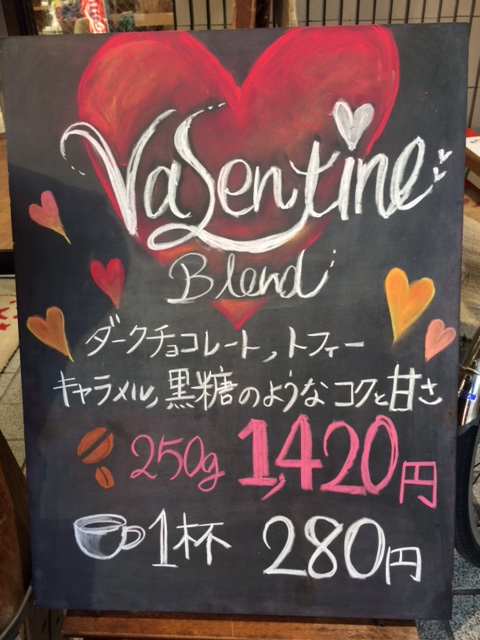 Valentine
Blend
ダークチョコレート,トフィー
キャラメル,黒糖のようなコクと甘さ
250g 1,420円
1杯 280円